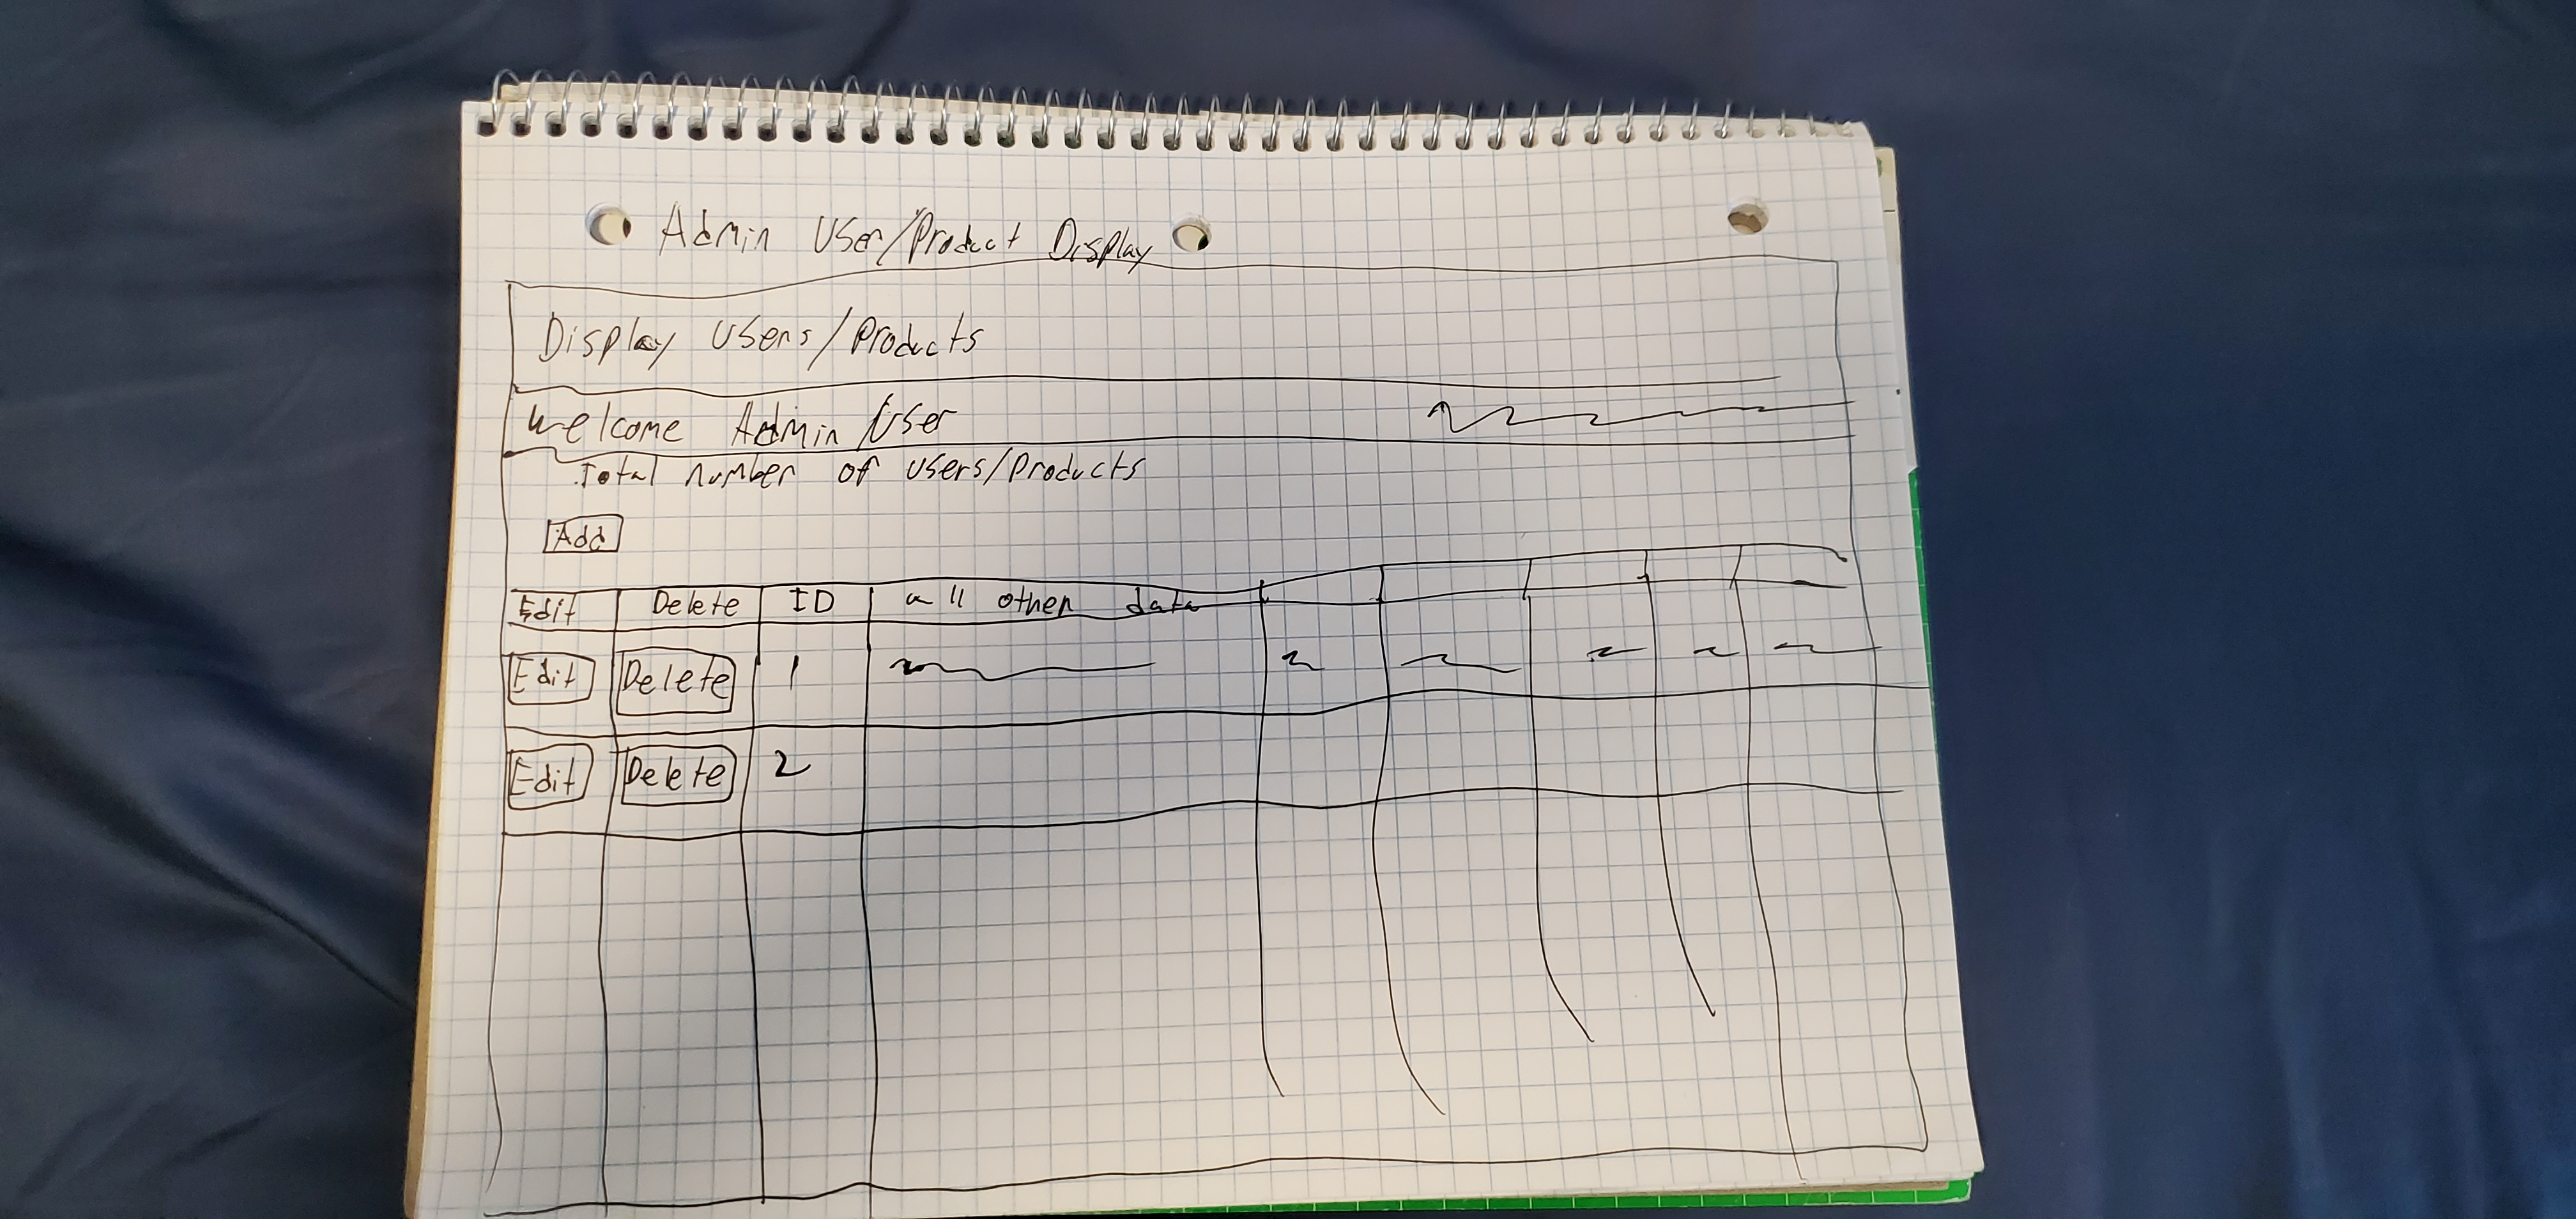 Admin User/Product Display
Display Users/Products
Welcome Admin User
Total number of users/Products
Add
Edit Delete ID all other data
Edit Delete 1
Edit Delete 2